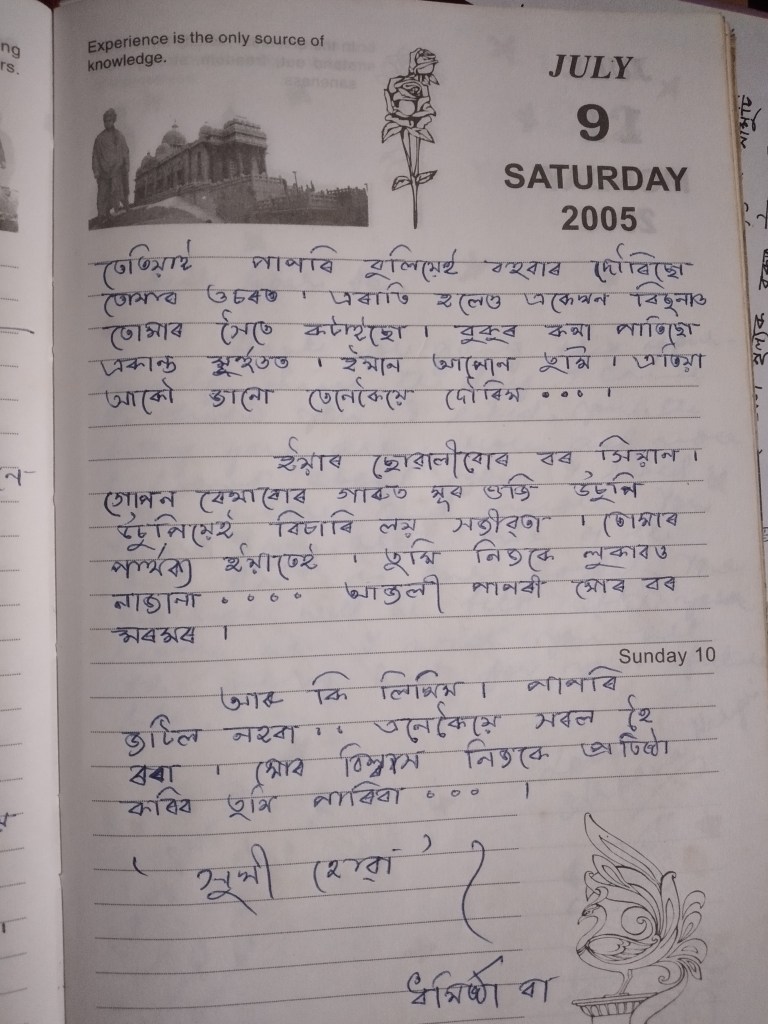 Experience is the only source of
knowledge.
JULY
9
SATURDAY
2005
তেতিয়াই পাপৰি বুলিয়েই বহুবাৰ দৌৰিছো
তোমাৰ ওচৰত । এৰাতি হলেও একেখন বিছনাত
তোমাৰ সৈতে কটাইছো । বুকুৰ কথা পাতিছো
একান্ত মুহূৰ্তত । ইমান আপোন তুমি । এতিয়া
আকৌ জানো তেনেকৈয়ে দৌৰিম ... ।
ইয়াৰ ছোৱালীবোৰ বৰ সিয়ান ।
গোপন বেথাবোৰ গাৰুত মূৰ গুজি উচুপি
উচুপিয়েই বিচাৰি লয় সজীৱতা । তোমাৰ
পাৰ্থক্য ইয়াতেই । তুমি নিজকে লুকাবও
নাজানা .... আজলী পাপৰী মোৰ বৰ
মৰমৰ ।
Sunday 10
আৰু কি লিখিম । পাপৰি
জটিল নহবা .. এনেকৈয়ে সৰল হৈ
ৰবা । মোৰ বিশ্বাস নিজকে প্ৰতিষ্ঠা
কৰিব তুমি পাৰিবা ... ।
‘ সুখী হোৱা ’
ধৰ্মিষ্ঠা বা
ng
rs.